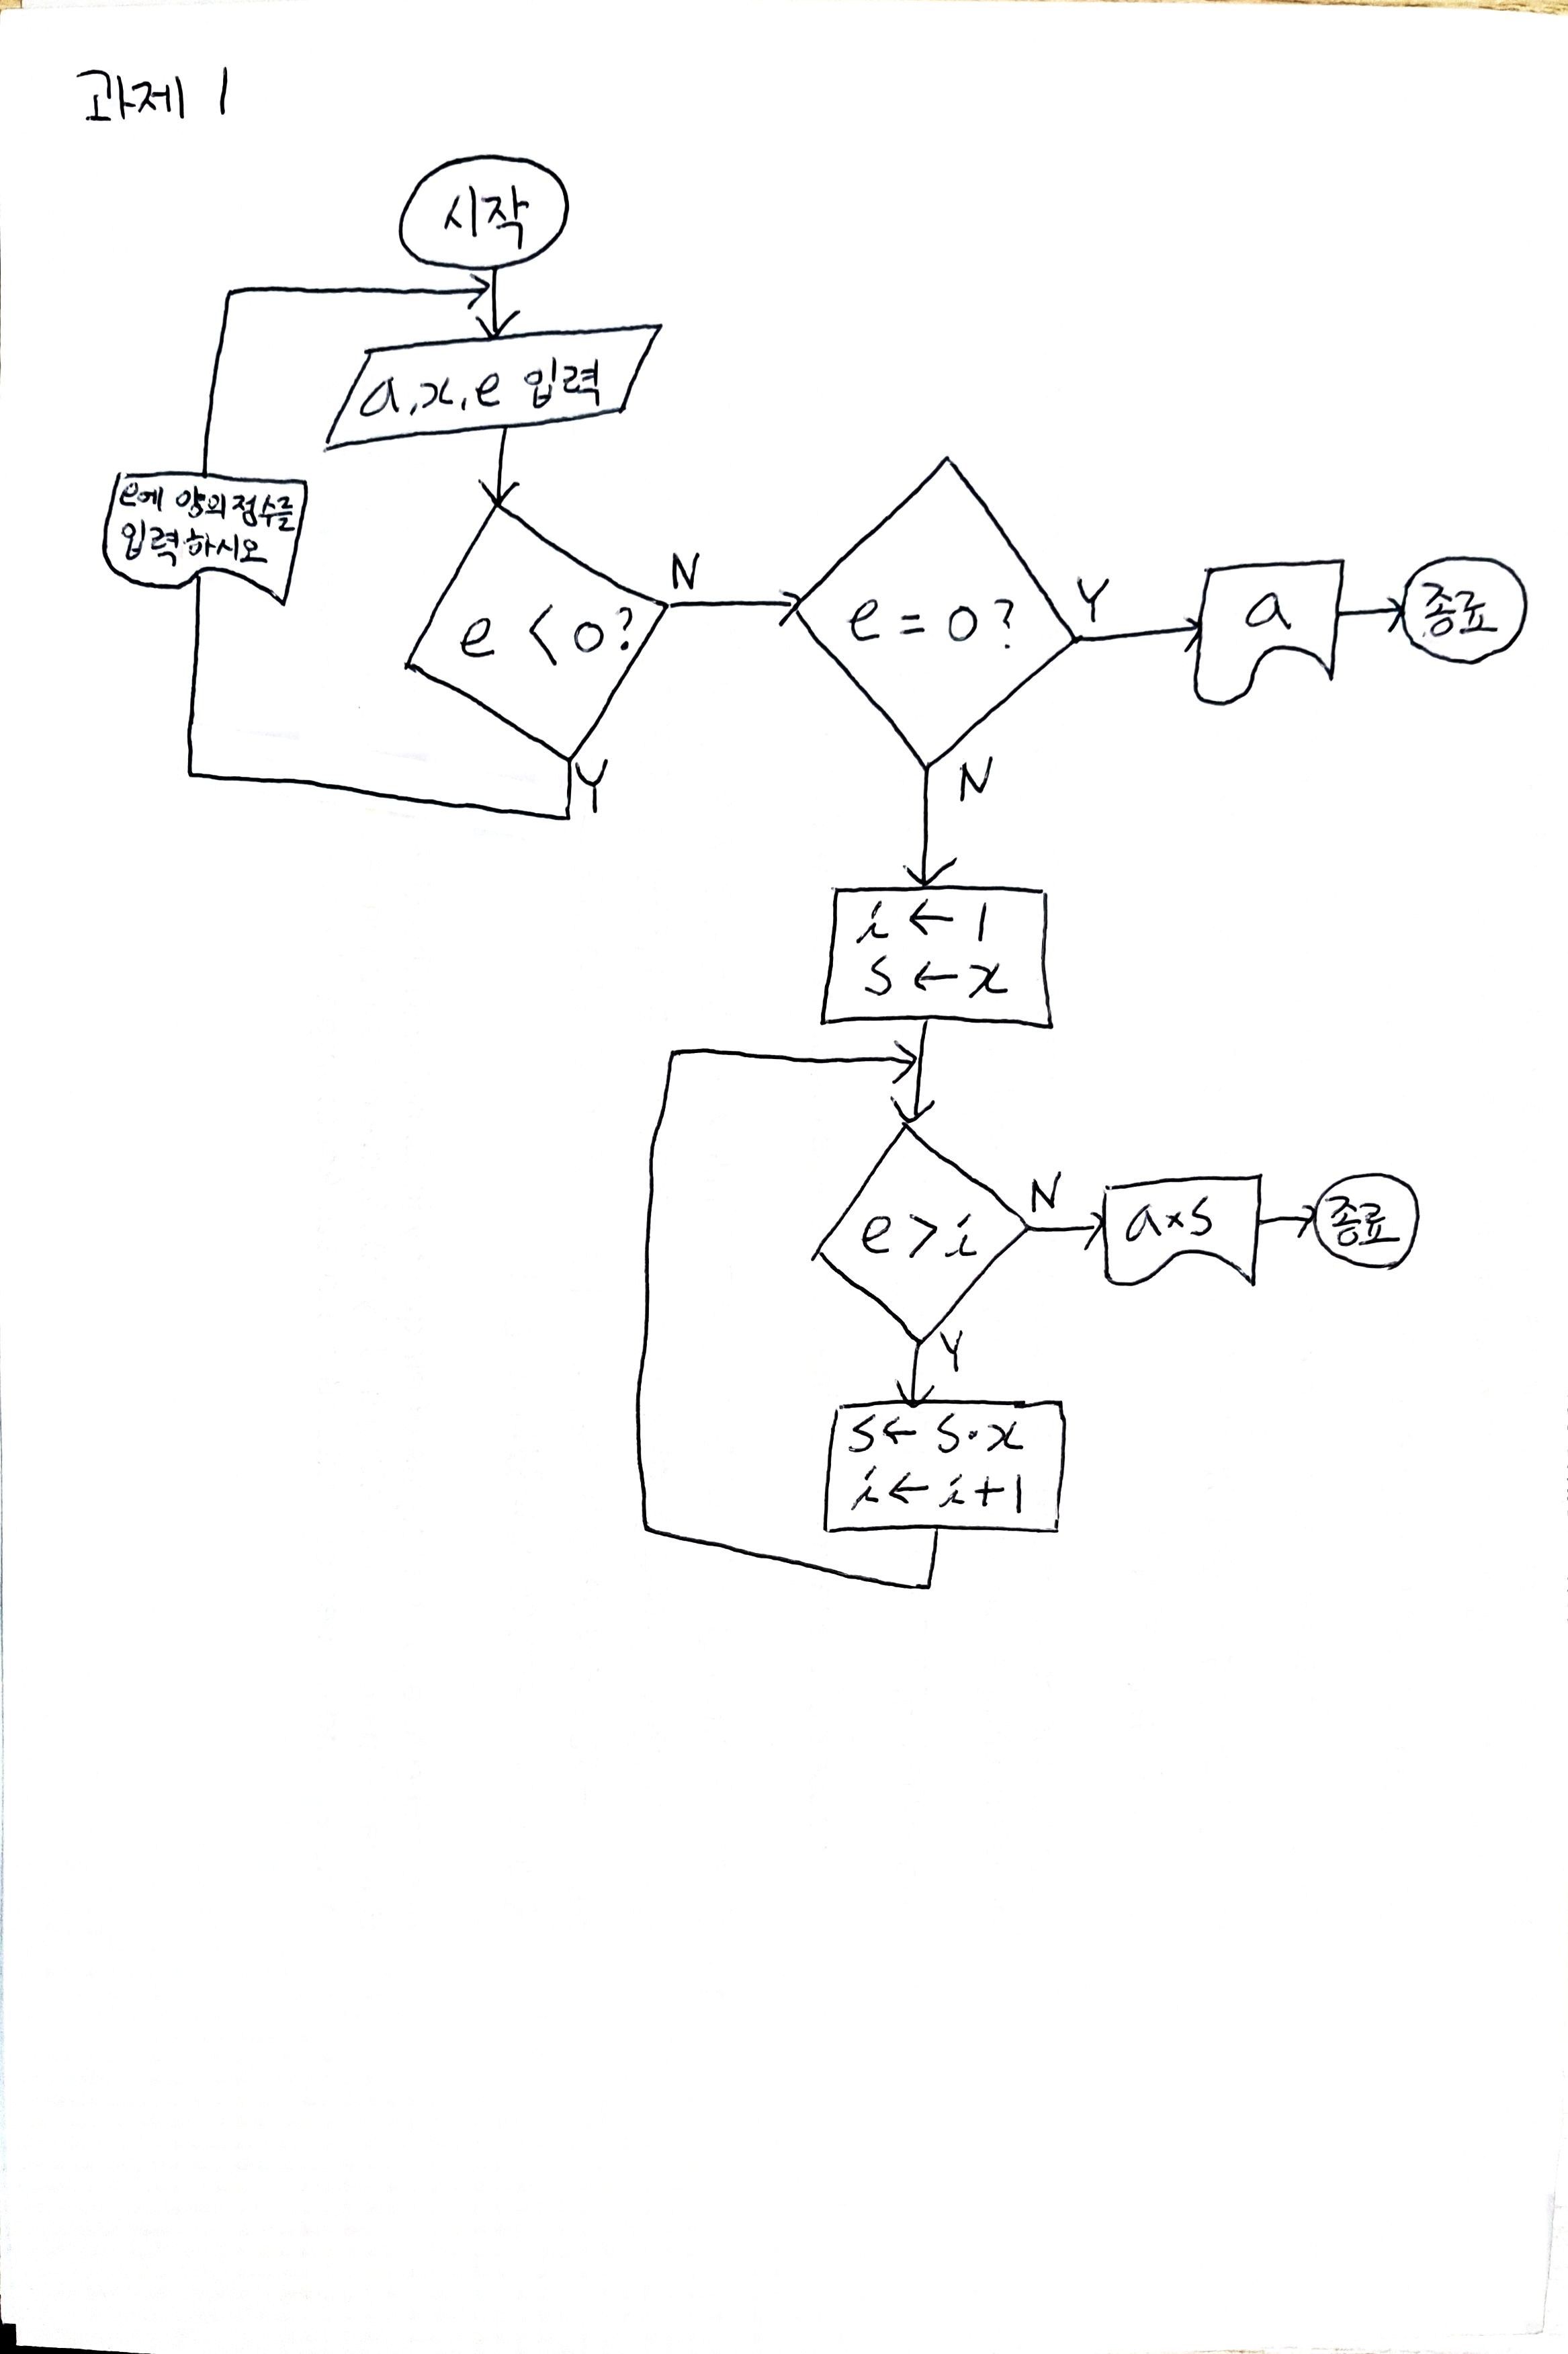 과제 1
시작
a, x, e 입력
e에 양의 정수를
입력하시오
e < 0?
N
Y
e = 0?
Y
a
종료
N
i ← 1
s ← x
e > i
N
a×s
종료
Y
s ← s·x
i ← i+1